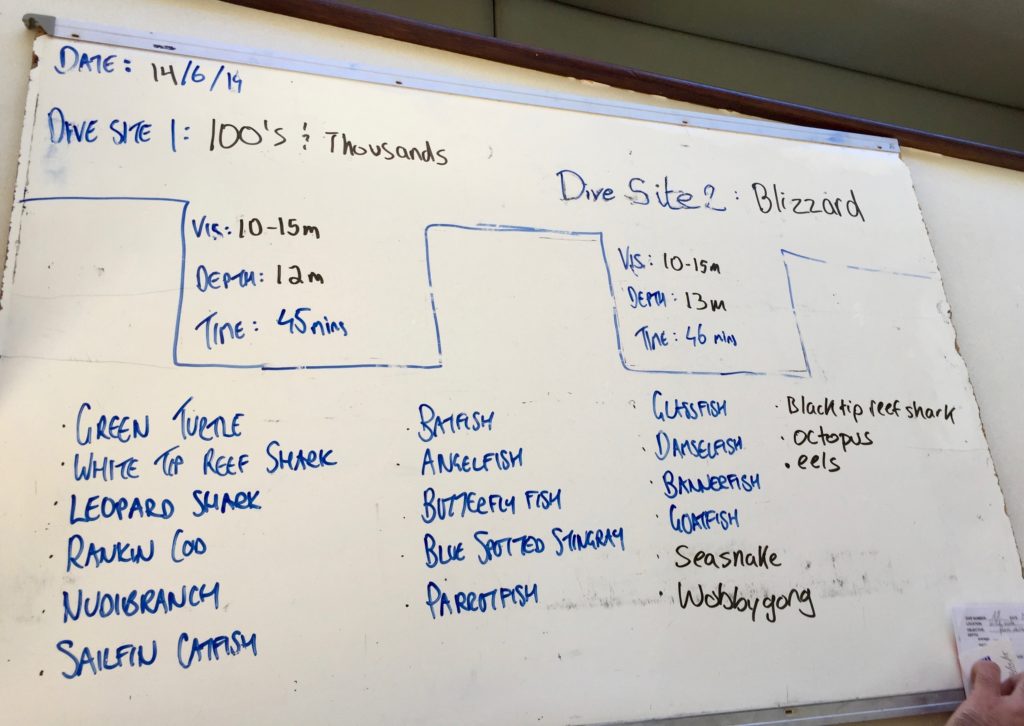 DATE: 14/6/19
DIVE SITE 1: 100's & Thousands
Dive Site 2: Blizzard
VIS: 10-15m
DEPTH: 12m
TIME: 45mins
VIS: 10-15m
DEPTH: 13m
TIME: 46 min
· GREEN TURTLE
· WHITE TIP REEF SHARK
· LEOPARD SHARK
· RANKIN COD
· NUDIBRANCH
· SAILFIN CATFISH
· BATFISH
· ANGELFISH
· BUTTERFLY FISH
· BLUE SPOTTED STINGRAY
· PARROTFISH
· GLASSFISH
· DAMSELFISH
· BANNERFISH
· GOATFISH
· Seasnake
· Wobbygong
· Blacktip reef shark
· octopus
· eels